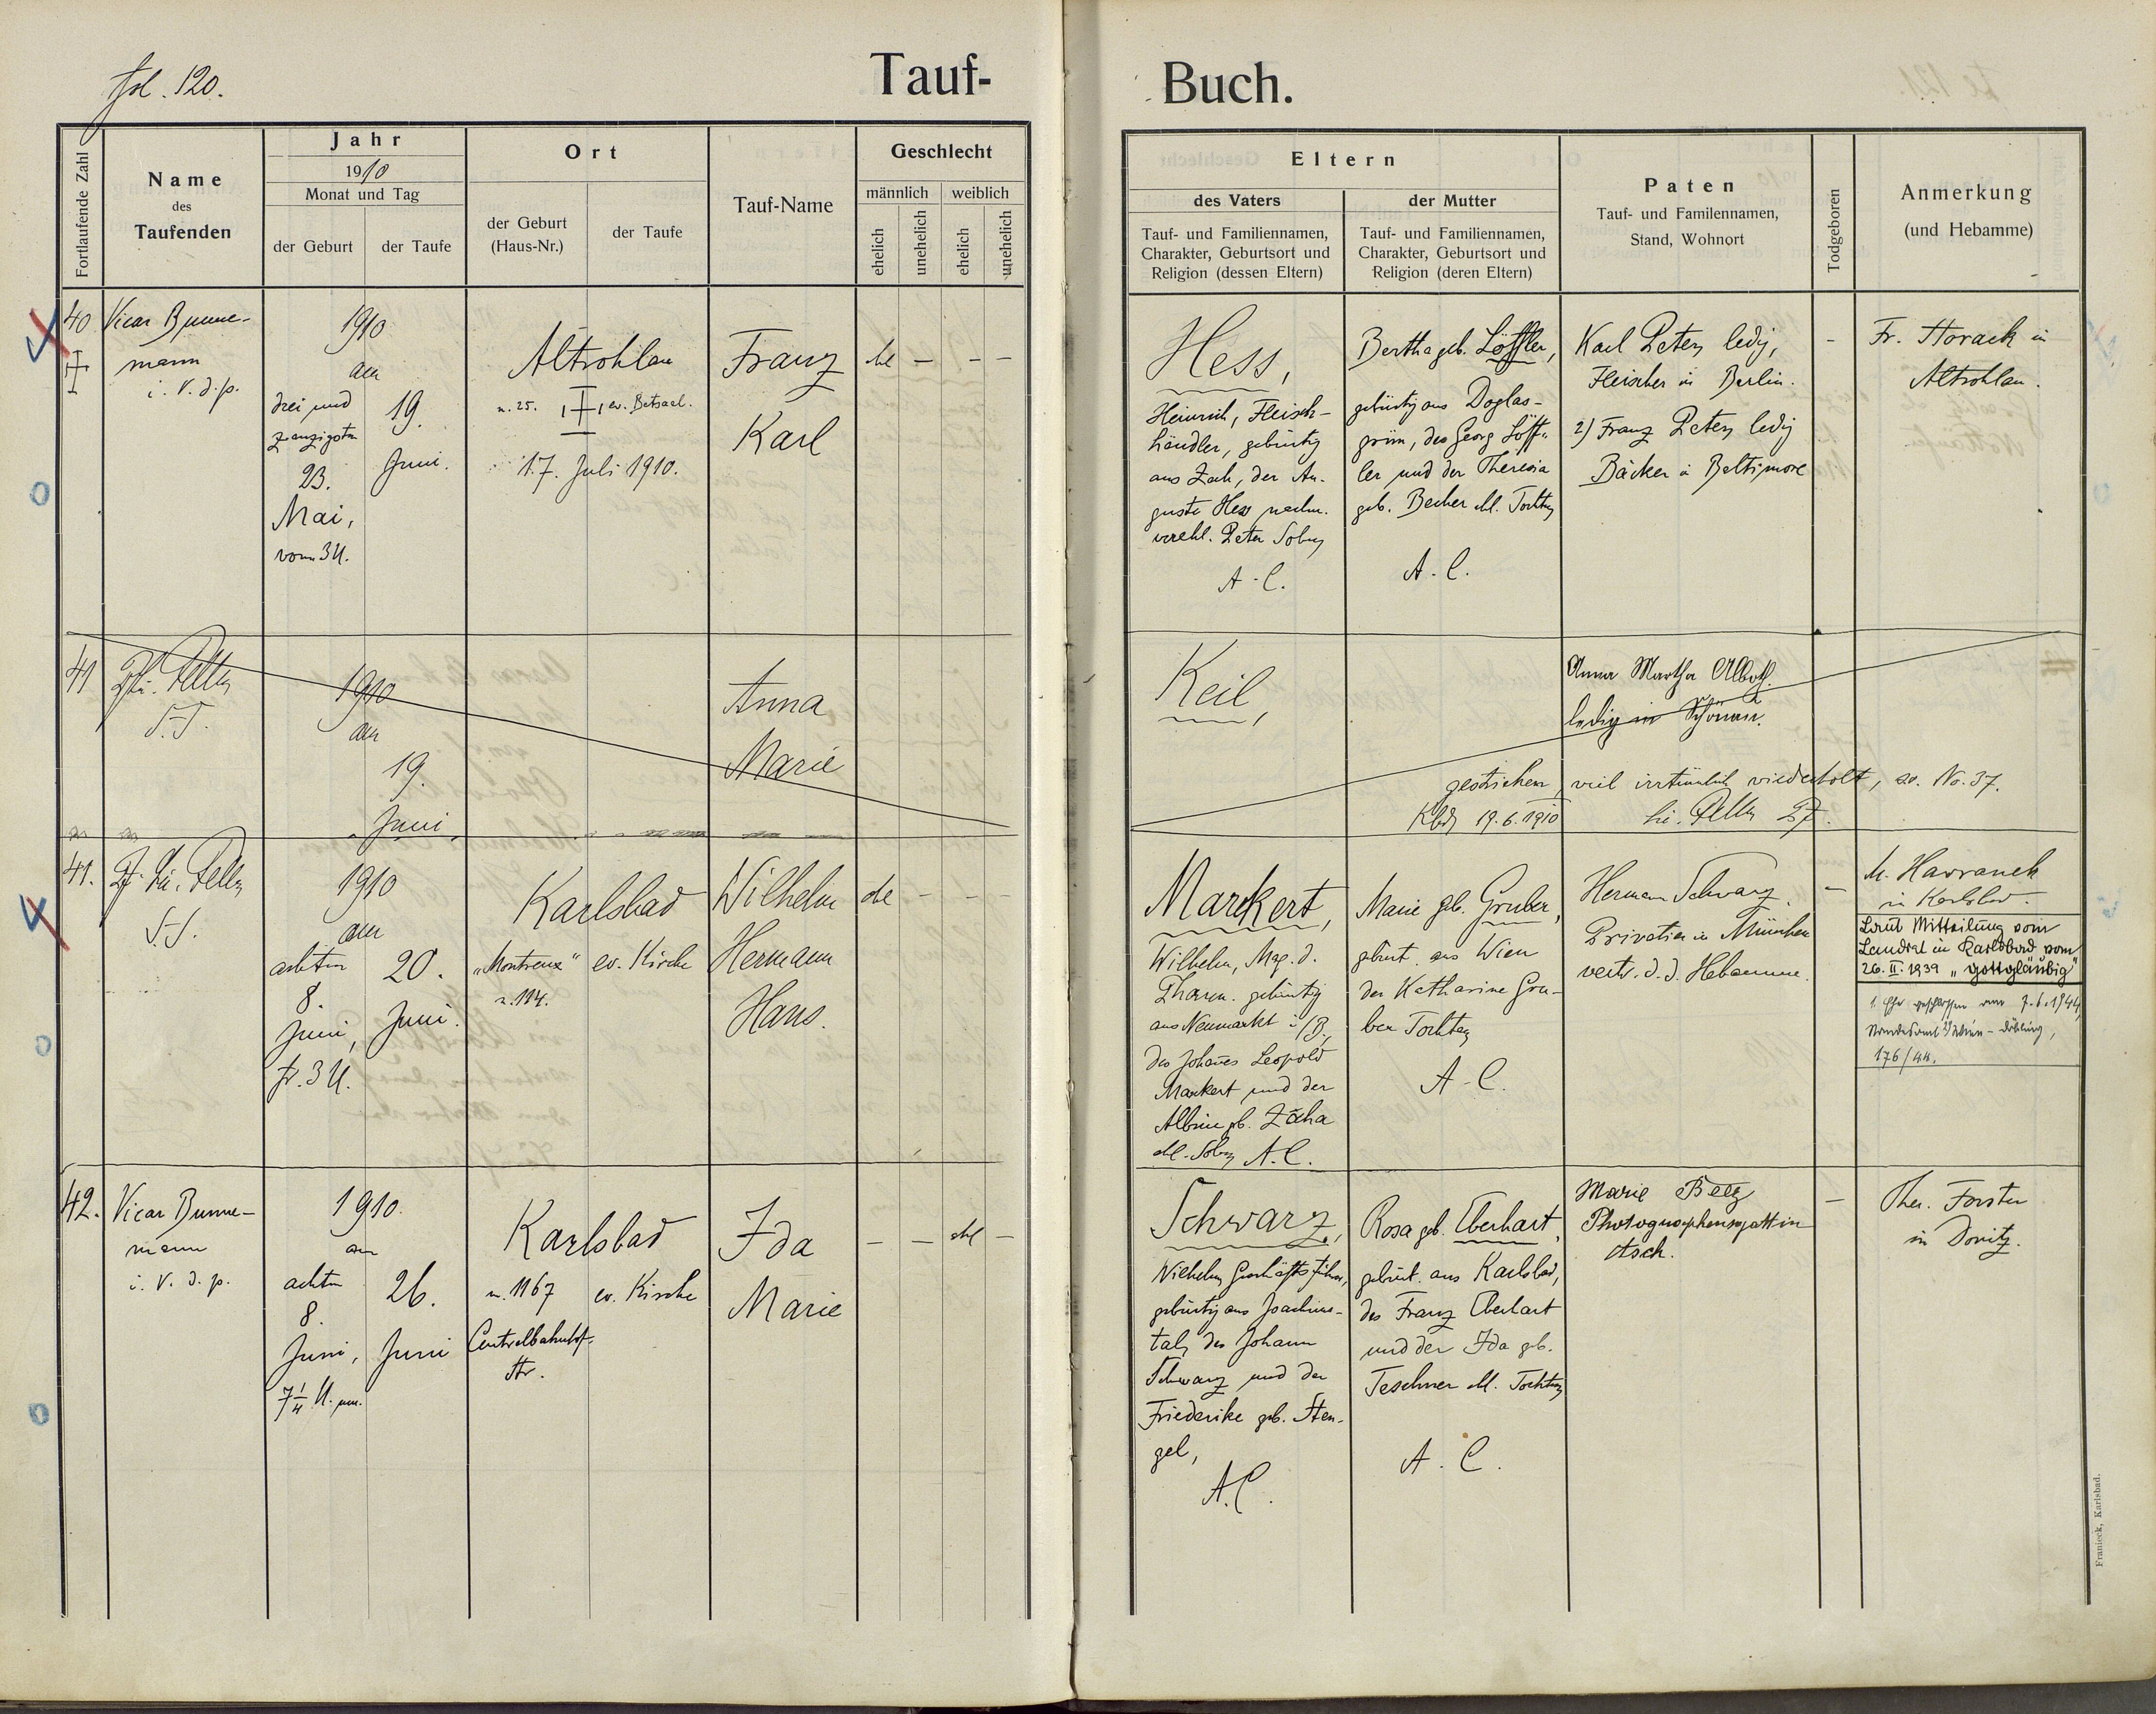 fol. 120.
Tauf-
Buch.
Fortlaufende Zahl
Name
des
Taufenden
Jahr
1910
Monat und Tag
der Geburt
der Taufe
Ort
der Geburt
(Haus-Nr.)
der Taufe
Tauf-Name
Geschlecht
männlich
weiblich
ehelich
unehelich
ehelich
unehelich
Eltern
des Vaters
Tauf- und Familiennamen,
Charakter, Geburtsort und
Religion (dessen Eltern)
der Mutter
Tauf- und Familiennamen,
Charakter, Geburtsort und
Religion (deren Eltern)
Paten
Tauf- und Familennamen,
Stand, Wohnort
Todgeboren
Anmerkung
(und Hebamme)
40
Vicar Bunne-
mann
i. V. d. p.
1910
am
drei und
zwanzigsten
23.
Mai,
vorm 3 U.
19.
Juni.
Altrohlau
n. 25.
ev. Betsaal.
17. Juli 1910.
Franz
Karl
ehel
-
-
-
Hess,
Heinrich, Fleisch-
händler, gebürtig
aus Zech, der Au-
guste Hess nachm.
verehl. Peter Sohn
A. C.
Bertha geb. Löffler,
gebürtig aus Doglas-
grün, des Georg Löff-
ler und der Theresia
geb. Becher ehl. Tochter
A. C.
Karl Peter, ledig,
Fleischer in Berlin.
2) Franz Peter, ledig
Bäcker in Baltimore
-
Fr. Horack in
Altrohlau.
41
1910
am
19.
Juni
Anna
Marie
Keil,
Anna Martha Alboth.
ledig in Schönau.
gestrichen, weil irrtümlich wiederholt, so. No. 37.
Kbd 19.6.1910
41.
1910
am
achten
8.
Juni,
fr. 3 U.
20.
Juni.
Karlsbad
"Montreux"
n. 114.
ev. Kirche
Wilhelm
Hermann
Hans.
ehel
-
-
-
Markert,
Wilhelm, Mag. d.
Pharm. gebürtig
aus Neumarkt i/B.,
des Johannes Leopold
Markert und der
Albine gb. Zäha
ehl. Sohn A. C.
Marie gb. Gruber,
gebürt. aus Wien
der Katharine Gru-
ber Tochter
A. C.
Hermann Schwarz.
Privatier in München
vertr. d. d. Hebamme.
-
M. Havranek
in Karlsbad.
Laut Mitteilung vom
Landrat in Karlsbad vom
26. II. 1939 "gottgläubig"
1. Ehe geschlossen am 7.6.1944,
Standesamt Wien-Döbling,
176/44.
42.
Vicar Bunne-
mann
i. V. d. p.
1910.
am
achten
8.
Juni,
7 1/4 U. nm.
26.
Juni
Karlsbad
n. 1167
Centralbahnhof-
str.
ev. Kirche
Ida
Marie
-
-
ehl
-
Schwarz,
Wilhelm Geschäftsführer,
gebürtig aus Joachims-
tal, des Johann
Schwarz und der
Friederike geb. Sten-
gel,
A. C.
Rosa geb. Eberhart,
gebürt. aus Karlsbad,
des Franz Eberhart
und der Ida geb.
Teschner ehl. Tochter
A. C.
Marie Beez
Photographensgattin
Asch.
-
Ther. Forster
in Donitz.
Franieck, Karlsbad.